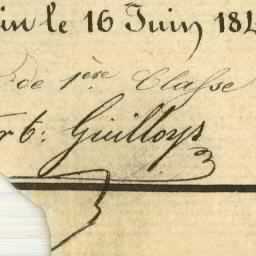 in le 16 Juin 184
de 1ère Classe
rt: Guilloys